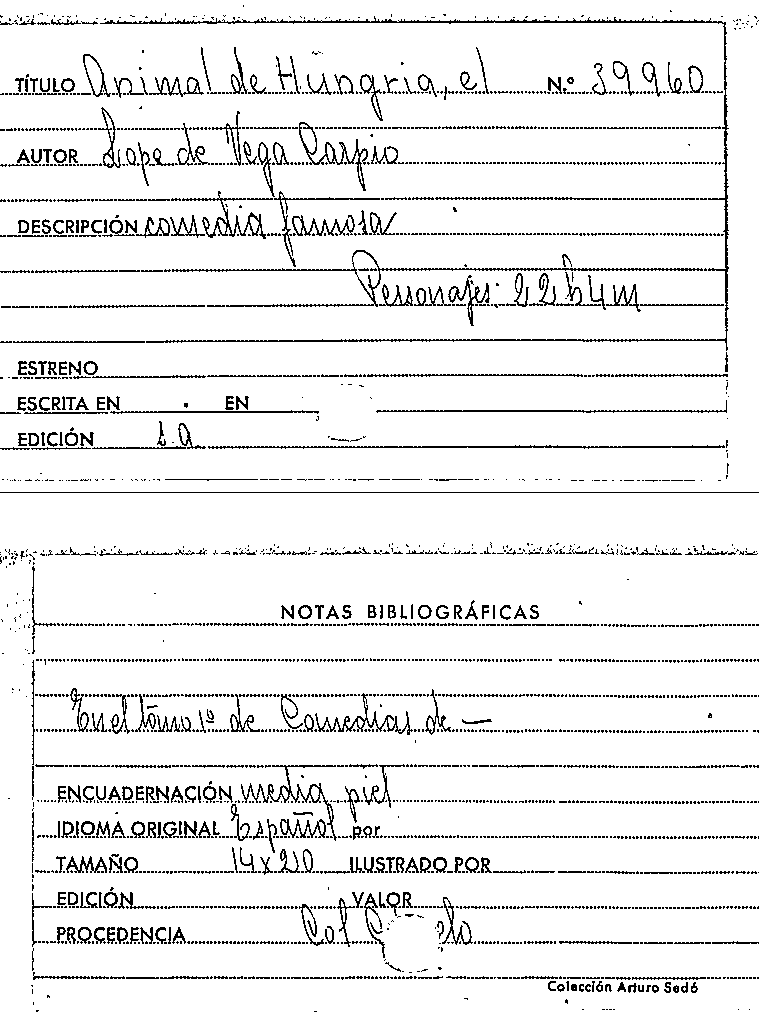 TÍTULO Animal de Hungria, el N.º 39960
AUTOR Lope de Vega Carpio
DESCRIPCIÓN comedia famosa
Personajes: 22 h 4 m
ESTRENO
ESCRITA EN . EN
EDICIÓN s.a
NOTAS BIBLIOGRÁFICAS
En el tomo 1º de Comedias de —
ENCUADERNACIÓN media piel
IDIOMA ORIGINAL Español por
TAMAÑO 14 x 20 ILUSTRADO POR
EDICIÓN VALOR
PROCEDENCIA Col
Colección Arturo Sedó